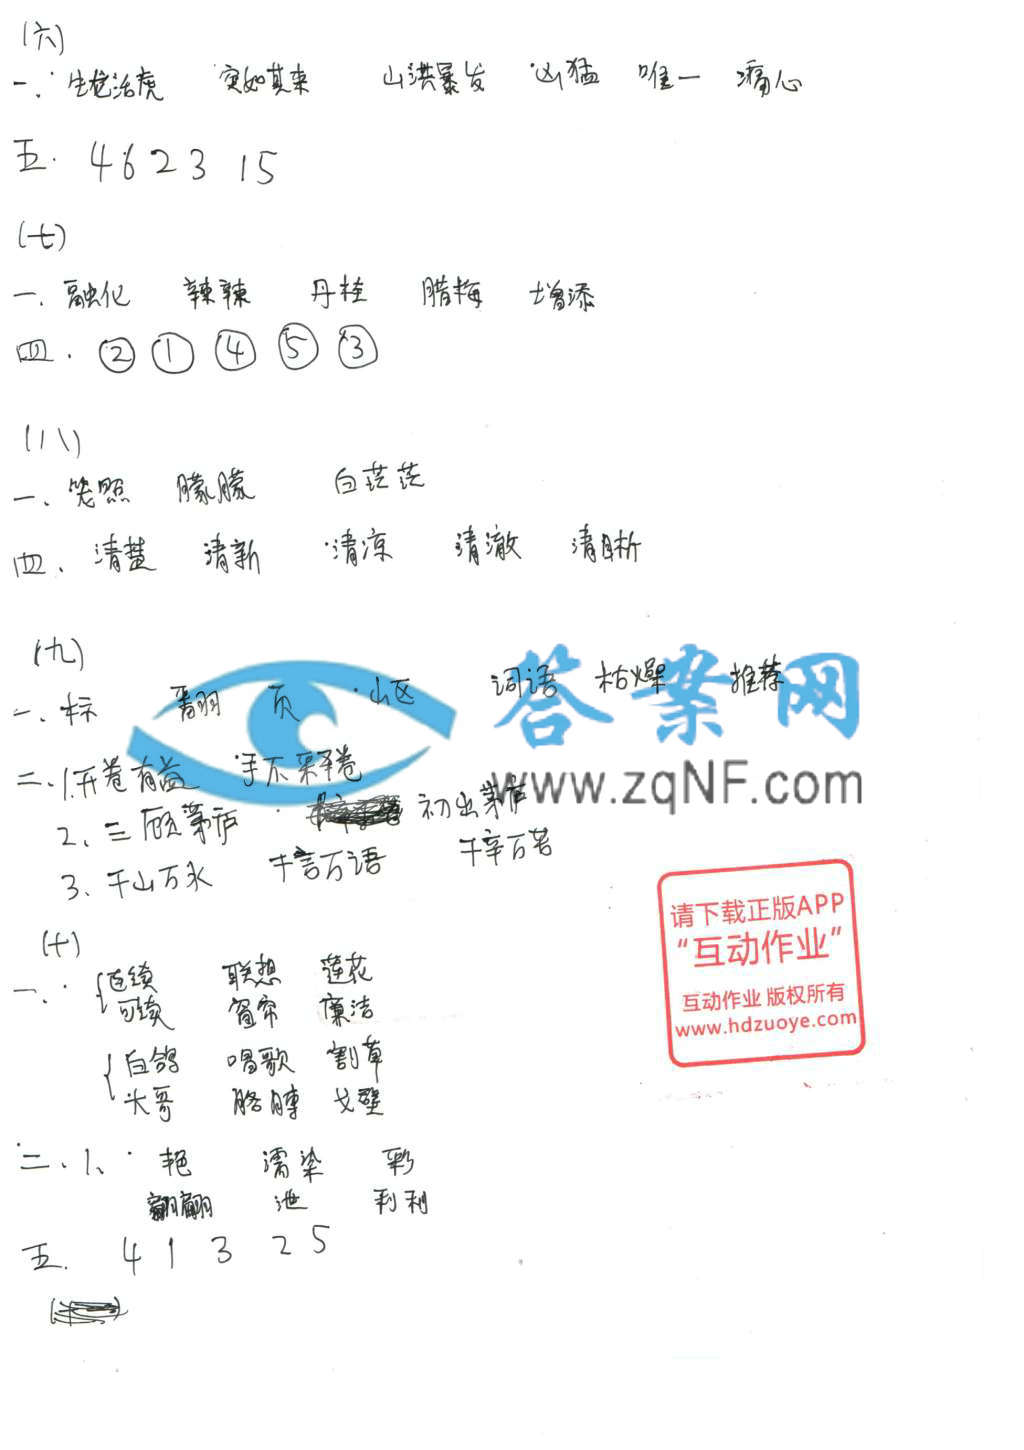 (六)
一、生龙活虎 突如其来 山洪暴发 凶猛 唯一 痛心
五. 4 6 2 3 1 5
(七)
一. 融化 辣辣 丹桂 腊梅 增添
四. ② ① ④ ⑤ ③
(八)
一、笼罩 朦朦 白茫茫
四、清楚 清新 清凉 清澈 清晰
(九)
一、标 翻 页 山区 词语 枯燥 推荐
答案网
www.zqNF.com
二、1.开卷有益 手不释卷
2、三顾茅庐 初出茅庐
3、千山万水 千言万语 千辛万苦
请下载正版APP
“互动作业”
互动作业 版权所有
www.hdzuoye.com
(十)
一、连续 联想 莲花
可续 窗帘 廉洁
白鸽 唱歌 割草
大哥 胳膊 戈壁
二、1、艳 濡染 彩
翩翩 泄 利利
五. 4 1 3 2 5